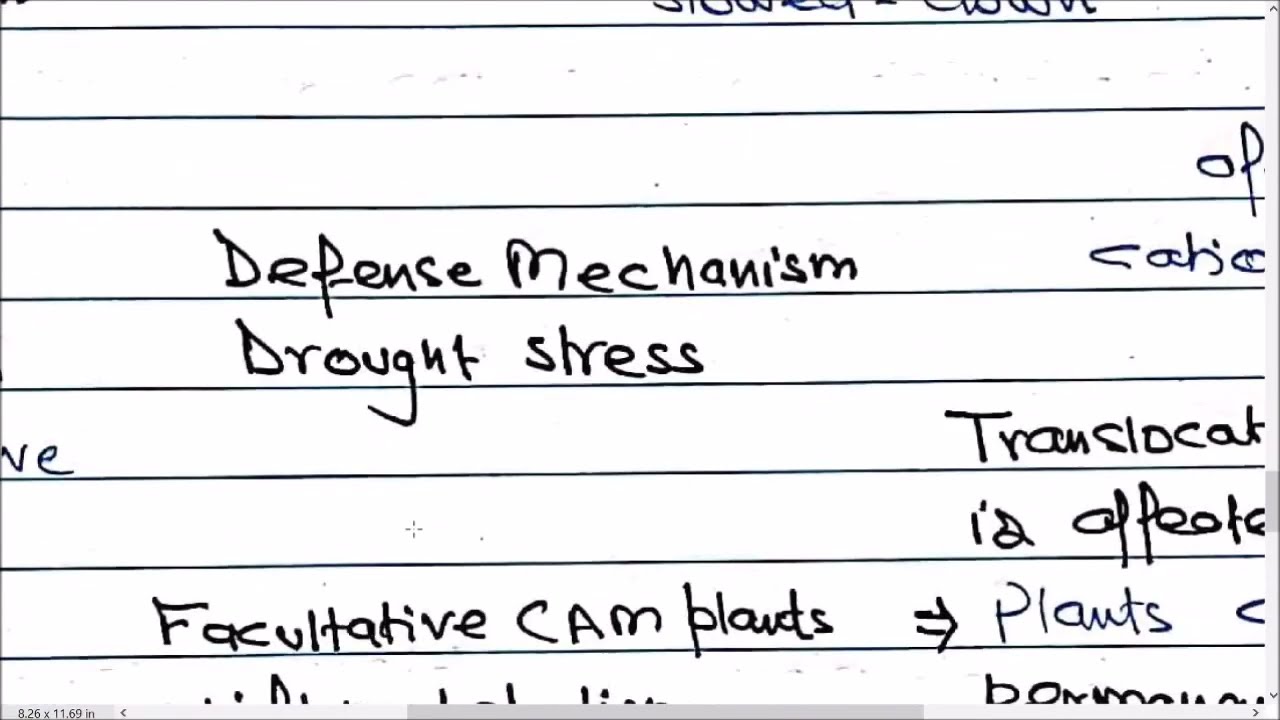 slowed-down
of
Defense Mechanism
catio
Drought stress
Translocat
ve
is affecte
Facultative CAM plants ⇒ Plants c
8.26 x 11.69 in